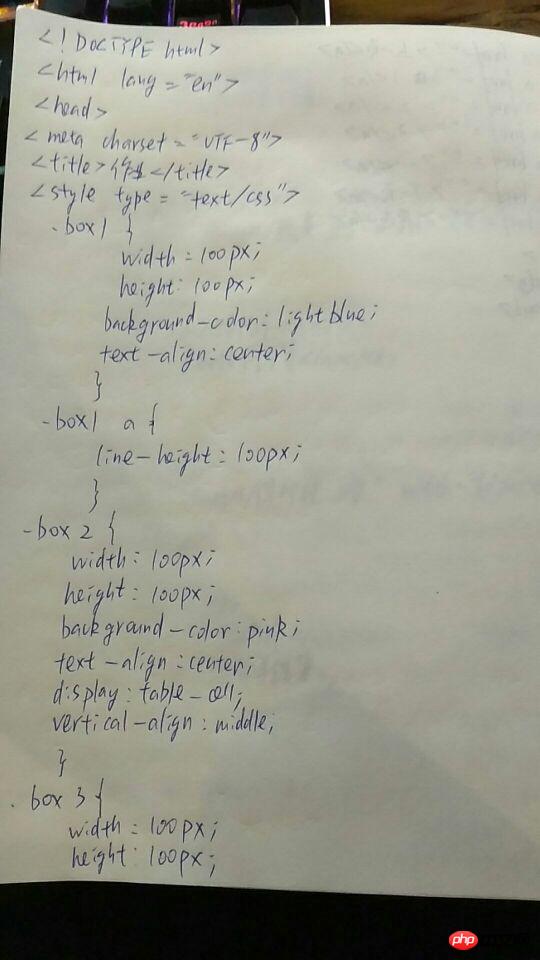 <!DOCTYPE html>
<html lang="en">
<head>
<meta charset="UTF-8">
<title>作业</title>
<style type="text/css">
.box1 {
width:100px;
height:100px;
background-color:lightblue;
text-align:center;
}
.box1 a {
line-height:100px;
}
.box2 {
width:100px;
height:100px;
background-color:pink;
text-align:center;
display:table-cell;
vertical-align:middle;
}
.box3 {
width:100px;
height:100px;
php